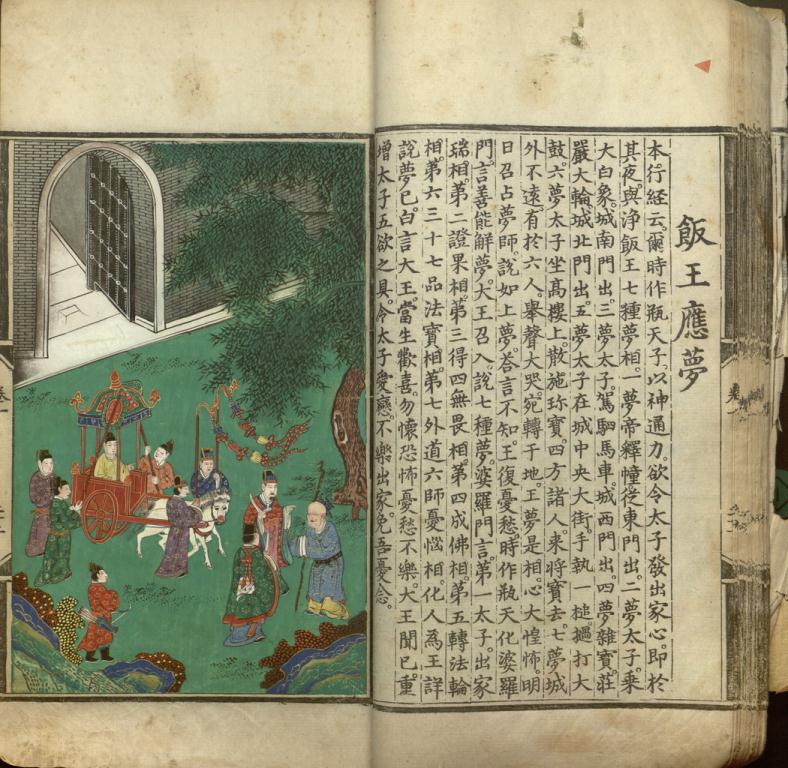 飯王應夢
本行経云。爾時作瓶天子。以神通力。欲令太子發出家心。即於
其夜。與淨飯王七種夢相。一夢帝釋幢。從東門出。二夢太子。乗
大白象。城南門出。三夢太子。駕駟馬車。城西門出。四夢雜寶。荘
嚴大輪。城北門出。五夢太子在城中央大街。手執一槌。撾打大
鼓。六夢太子坐髙樓上。散施珎寶。四方諸人。来将寶去。七夢城
外不遠。有於六人。舉聲大哭。宛轉于地。王夢是相。心大惶怖。明
日召占夢師。說如上夢。荅言不知。王復憂愁。時作瓶天。化婆羅
門。言善能解夢。大王召入。說七種夢。婆羅門言。第一太子。出家
瑞相。第二證果相。第三得四無畏相。第四成佛相。第五轉法輪
相。第六三十七品法寶相。第七外道六師憂惱相。化人為王詳
說夢已。白言大王。當生歡喜。勿懐恐怖憂愁不樂。大王聞已。重
增太子五欲之具。令太子愛戀。不樂出家。免吾憂念。